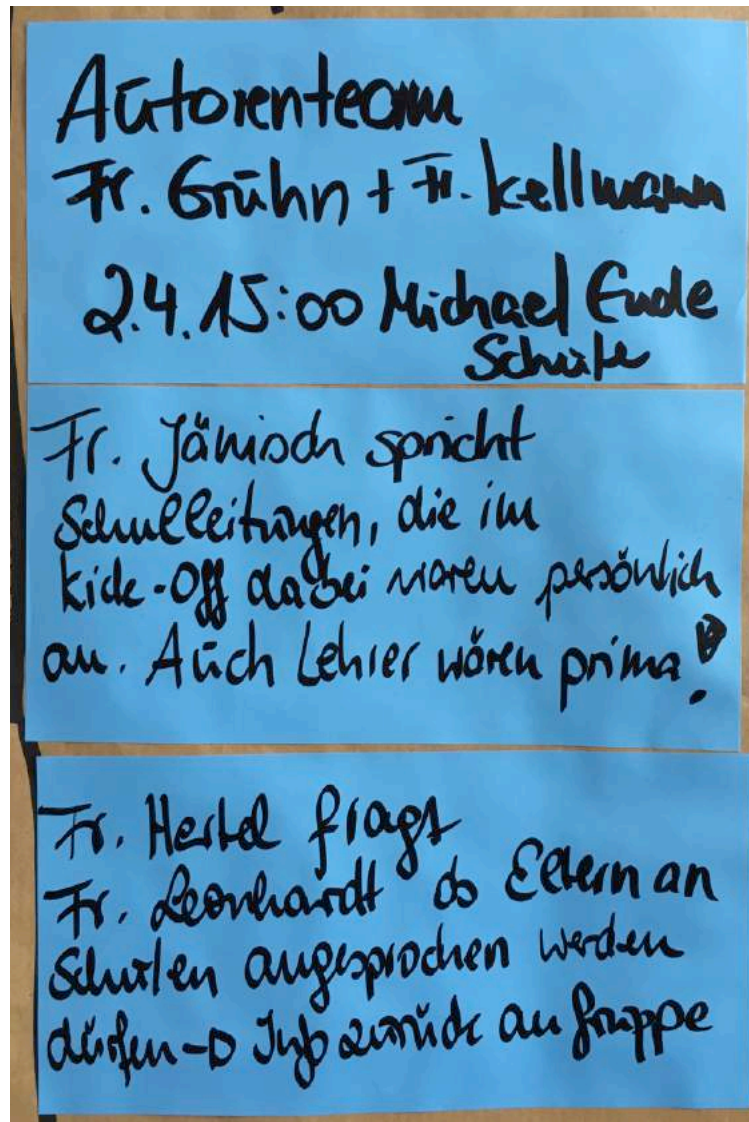 Autorenteam
Fr. Grühn + Fr. Kellmann
2.4. 15:00 Michael Ende
Schule
Fr. Jänisch spricht
Schulleitungen, die im
Kick-Off dabei waren persönlich
an. Auch Lehrer wären prima!
Fr. Hertel fragt
Fr. Leonhardt ob Eltern an
Schulen angesprochen werden
dürfen → Info zurück an Gruppe